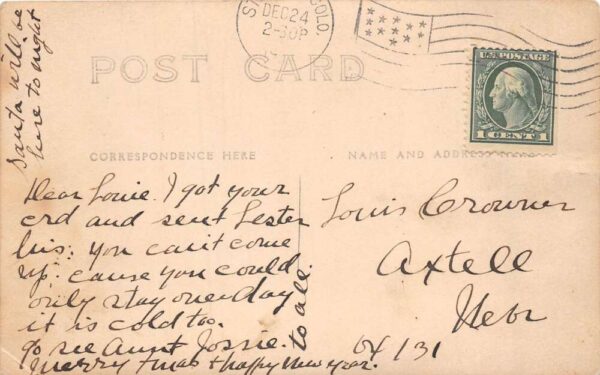 Santa will be
here to night
DEC 24
2-30P
COLO.
POST CARD
U.S. POSTAGE
1 CENT 1
CORRESPONDENCE HERE
NAME AND ADDRESS
Dear Louie. I got your
crd and sent Lester
his. you can't come
up. cause you could
only stay one day
it is cold too.
go see Aunt Jossie. to all
Merry Xmas & Happy New Year.
Louis Crowner
Axtell
Nebr
131